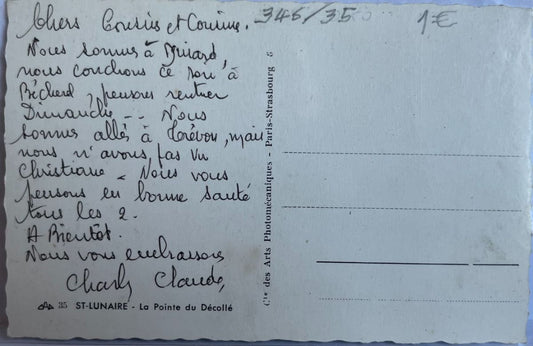 Chers Cousins et Cousine.
346/35
1€
Nous sommes à Dinard,
nous couchons ce soir à
Bécherel, pensons rentrer
Dimanche -- Nous
sommes allés à Trévou, mais
nous n'avons pas vu
Christiane - Nous vous
pensons en bonne santé
tous les 2.
A Bientôt.
Nous vous embrassons
Charly Claude,
35 ST-LUNAIRE - La Pointe du Décollé
Cie des Arts Photomécaniques - Paris-Strasbourg